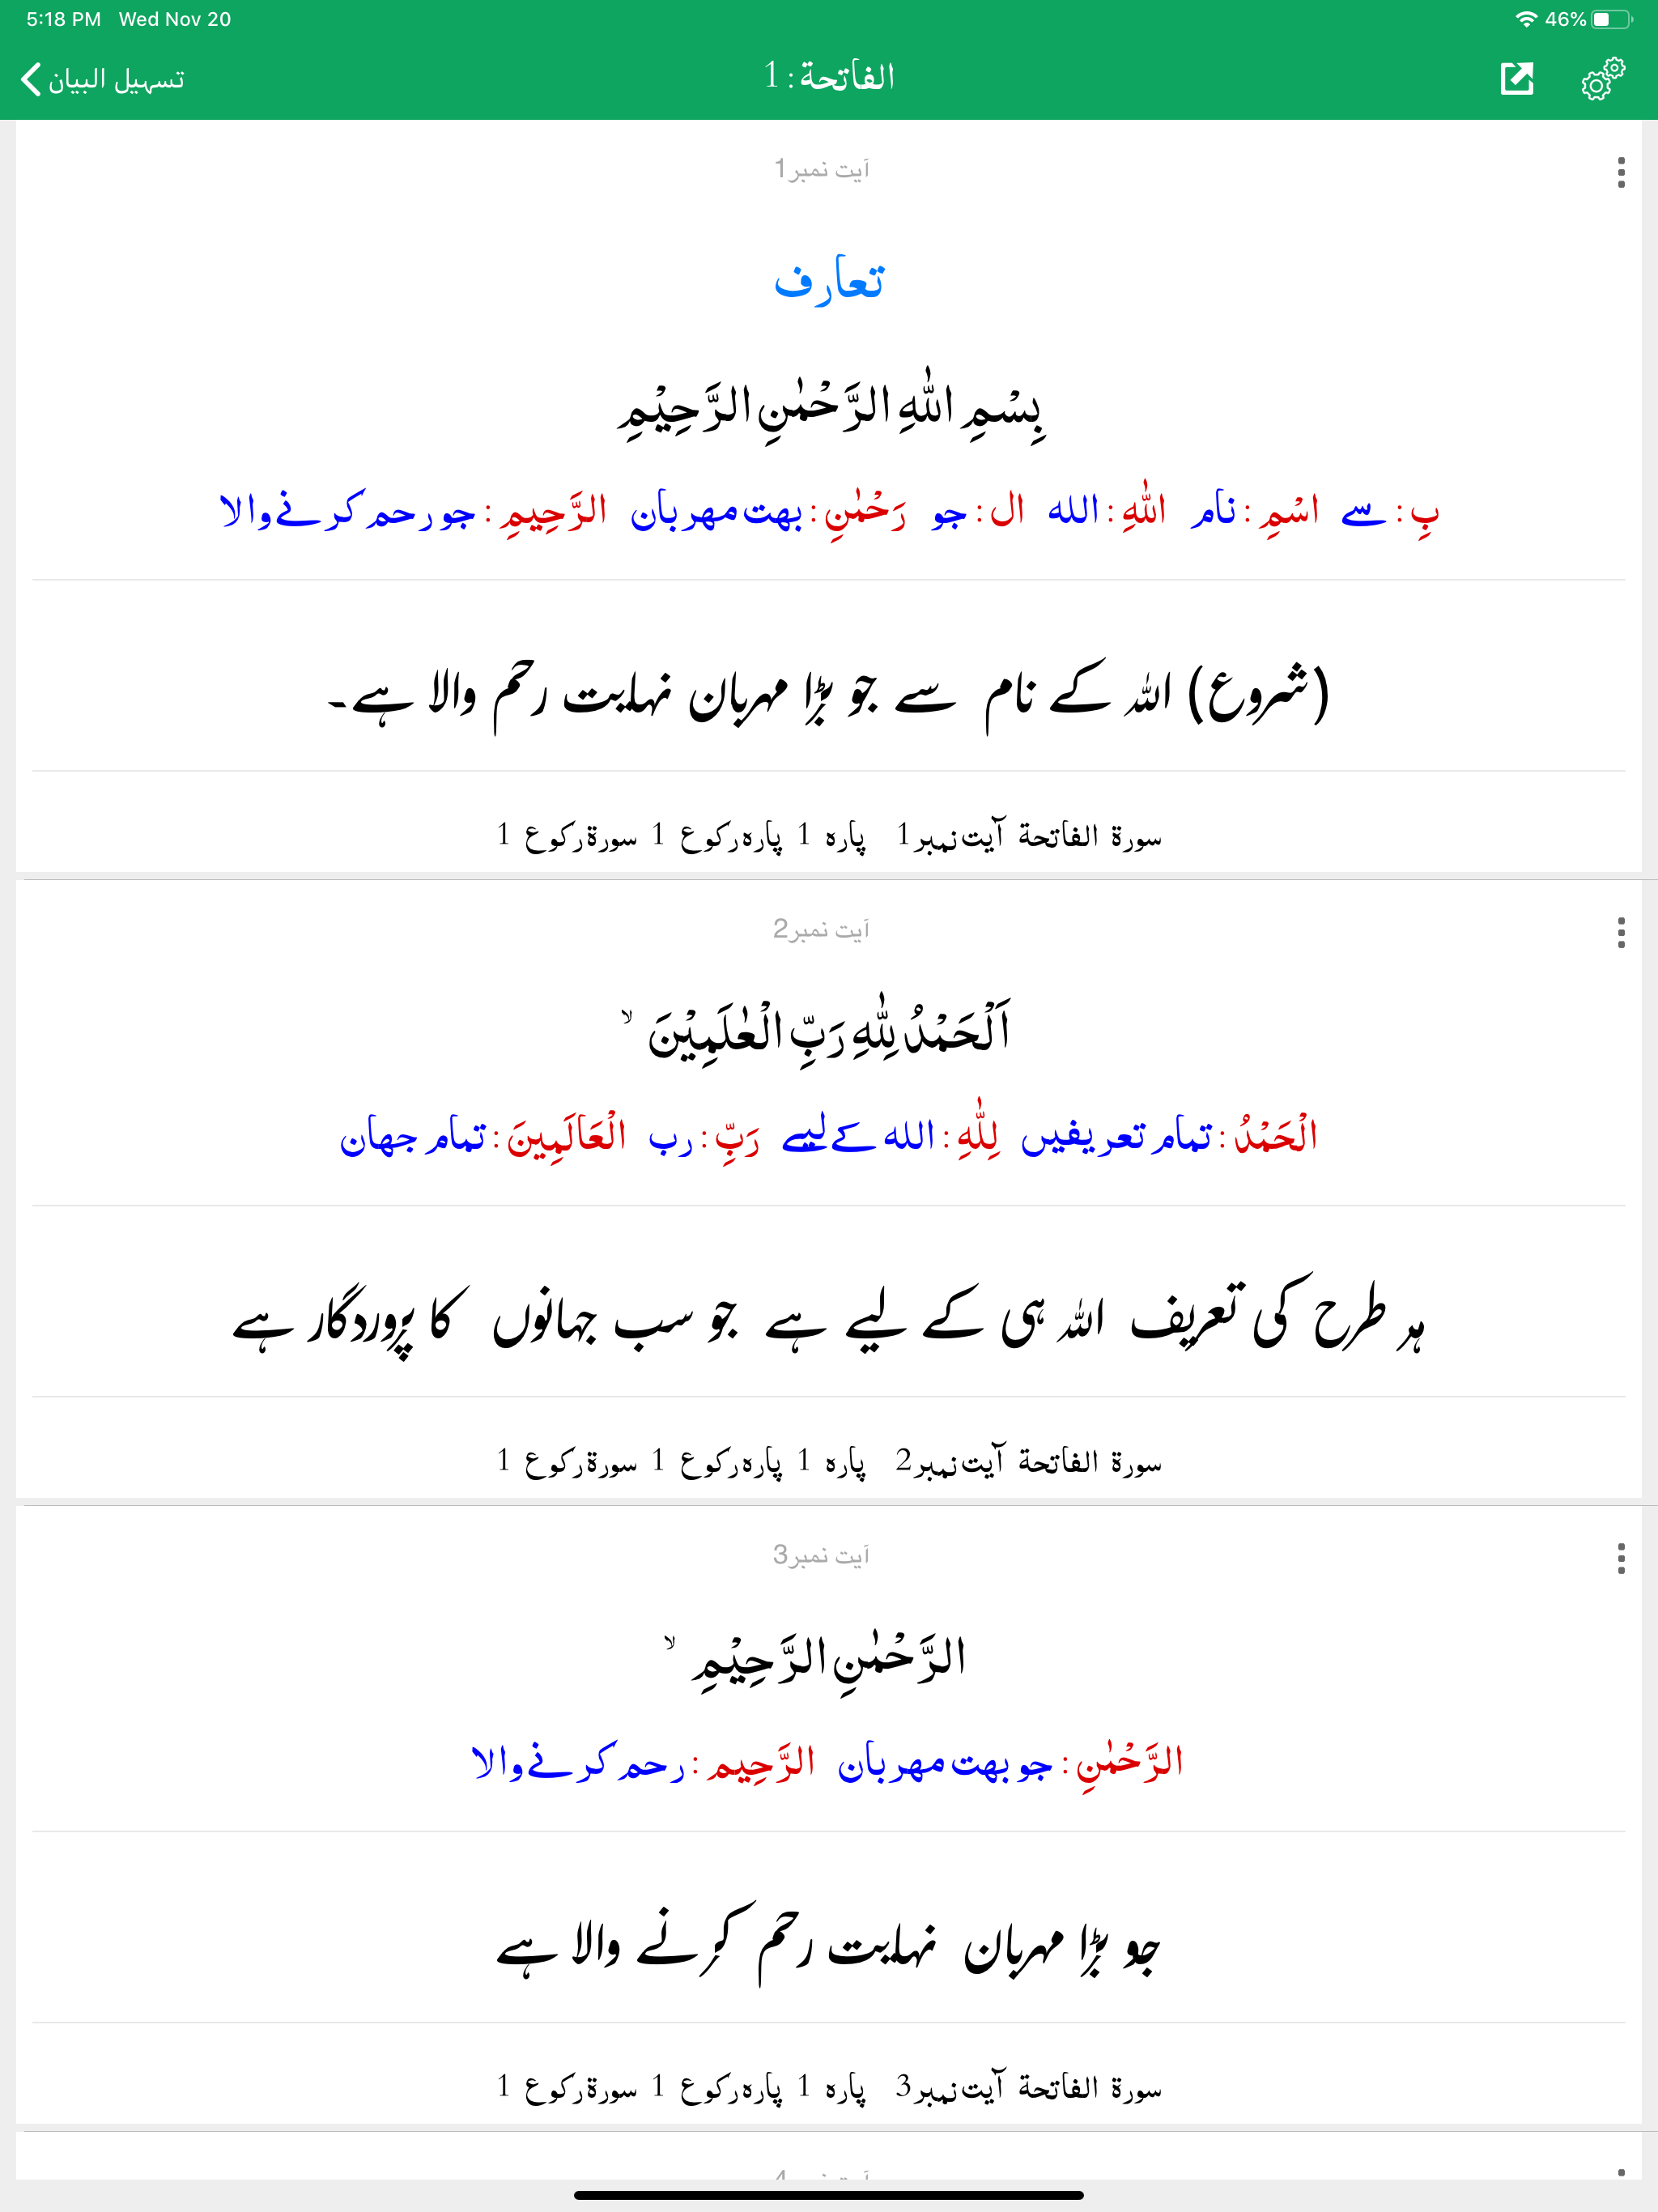 5:18 PM Wed Nov 20 46%
تسہیل البیان
الفاتحة : 1
آیت نمبر1
تعارف
بِسْمِ اللّٰهِ الرَّحْمٰنِ الرَّحِیْمِ
بِ : سے اسْمِ : نام اللّٰهِ : الله ال : جو رَحْمٰنِ : بهت مهربان الرَّحِيمِ : جو رحم کرنے والا
(شروع) اللہ کے نام سے جو بڑا مہربان نہایت رحم والا ہے۔
سورۃ الفاتحة آیت نمبر1 پارہ 1 پارہ رکوع 1 سورۃ رکوع 1
آیت نمبر2
اَلْحَمْدُ لِلّٰهِ رَبِّ الْعٰلَمِیْنَ ۙ
الْحَمْدُ : تمام تعریفیں لِلّٰهِ : الله کے لیے رَبِّ : رب الْعَالَمِينَ : تمام جهان
ہر طرح کی تعریف اللہ ہی کے لیے ہے جو سب جہانوں کا پروردگار ہے
سورۃ الفاتحة آیت نمبر2 پارہ 1 پارہ رکوع 1 سورۃ رکوع 1
آیت نمبر3
الرَّحْمٰنِ الرَّحِیْمِ ۙ
الرَّحْمٰنِ : جو بهت مهربان الرَّحِيم : رحم کرنے والا
جو بڑا مہربان نہایت رحم کرنے والا ہے
سورۃ الفاتحة آیت نمبر3 پارہ 1 پارہ رکوع 1 سورۃ رکوع 1